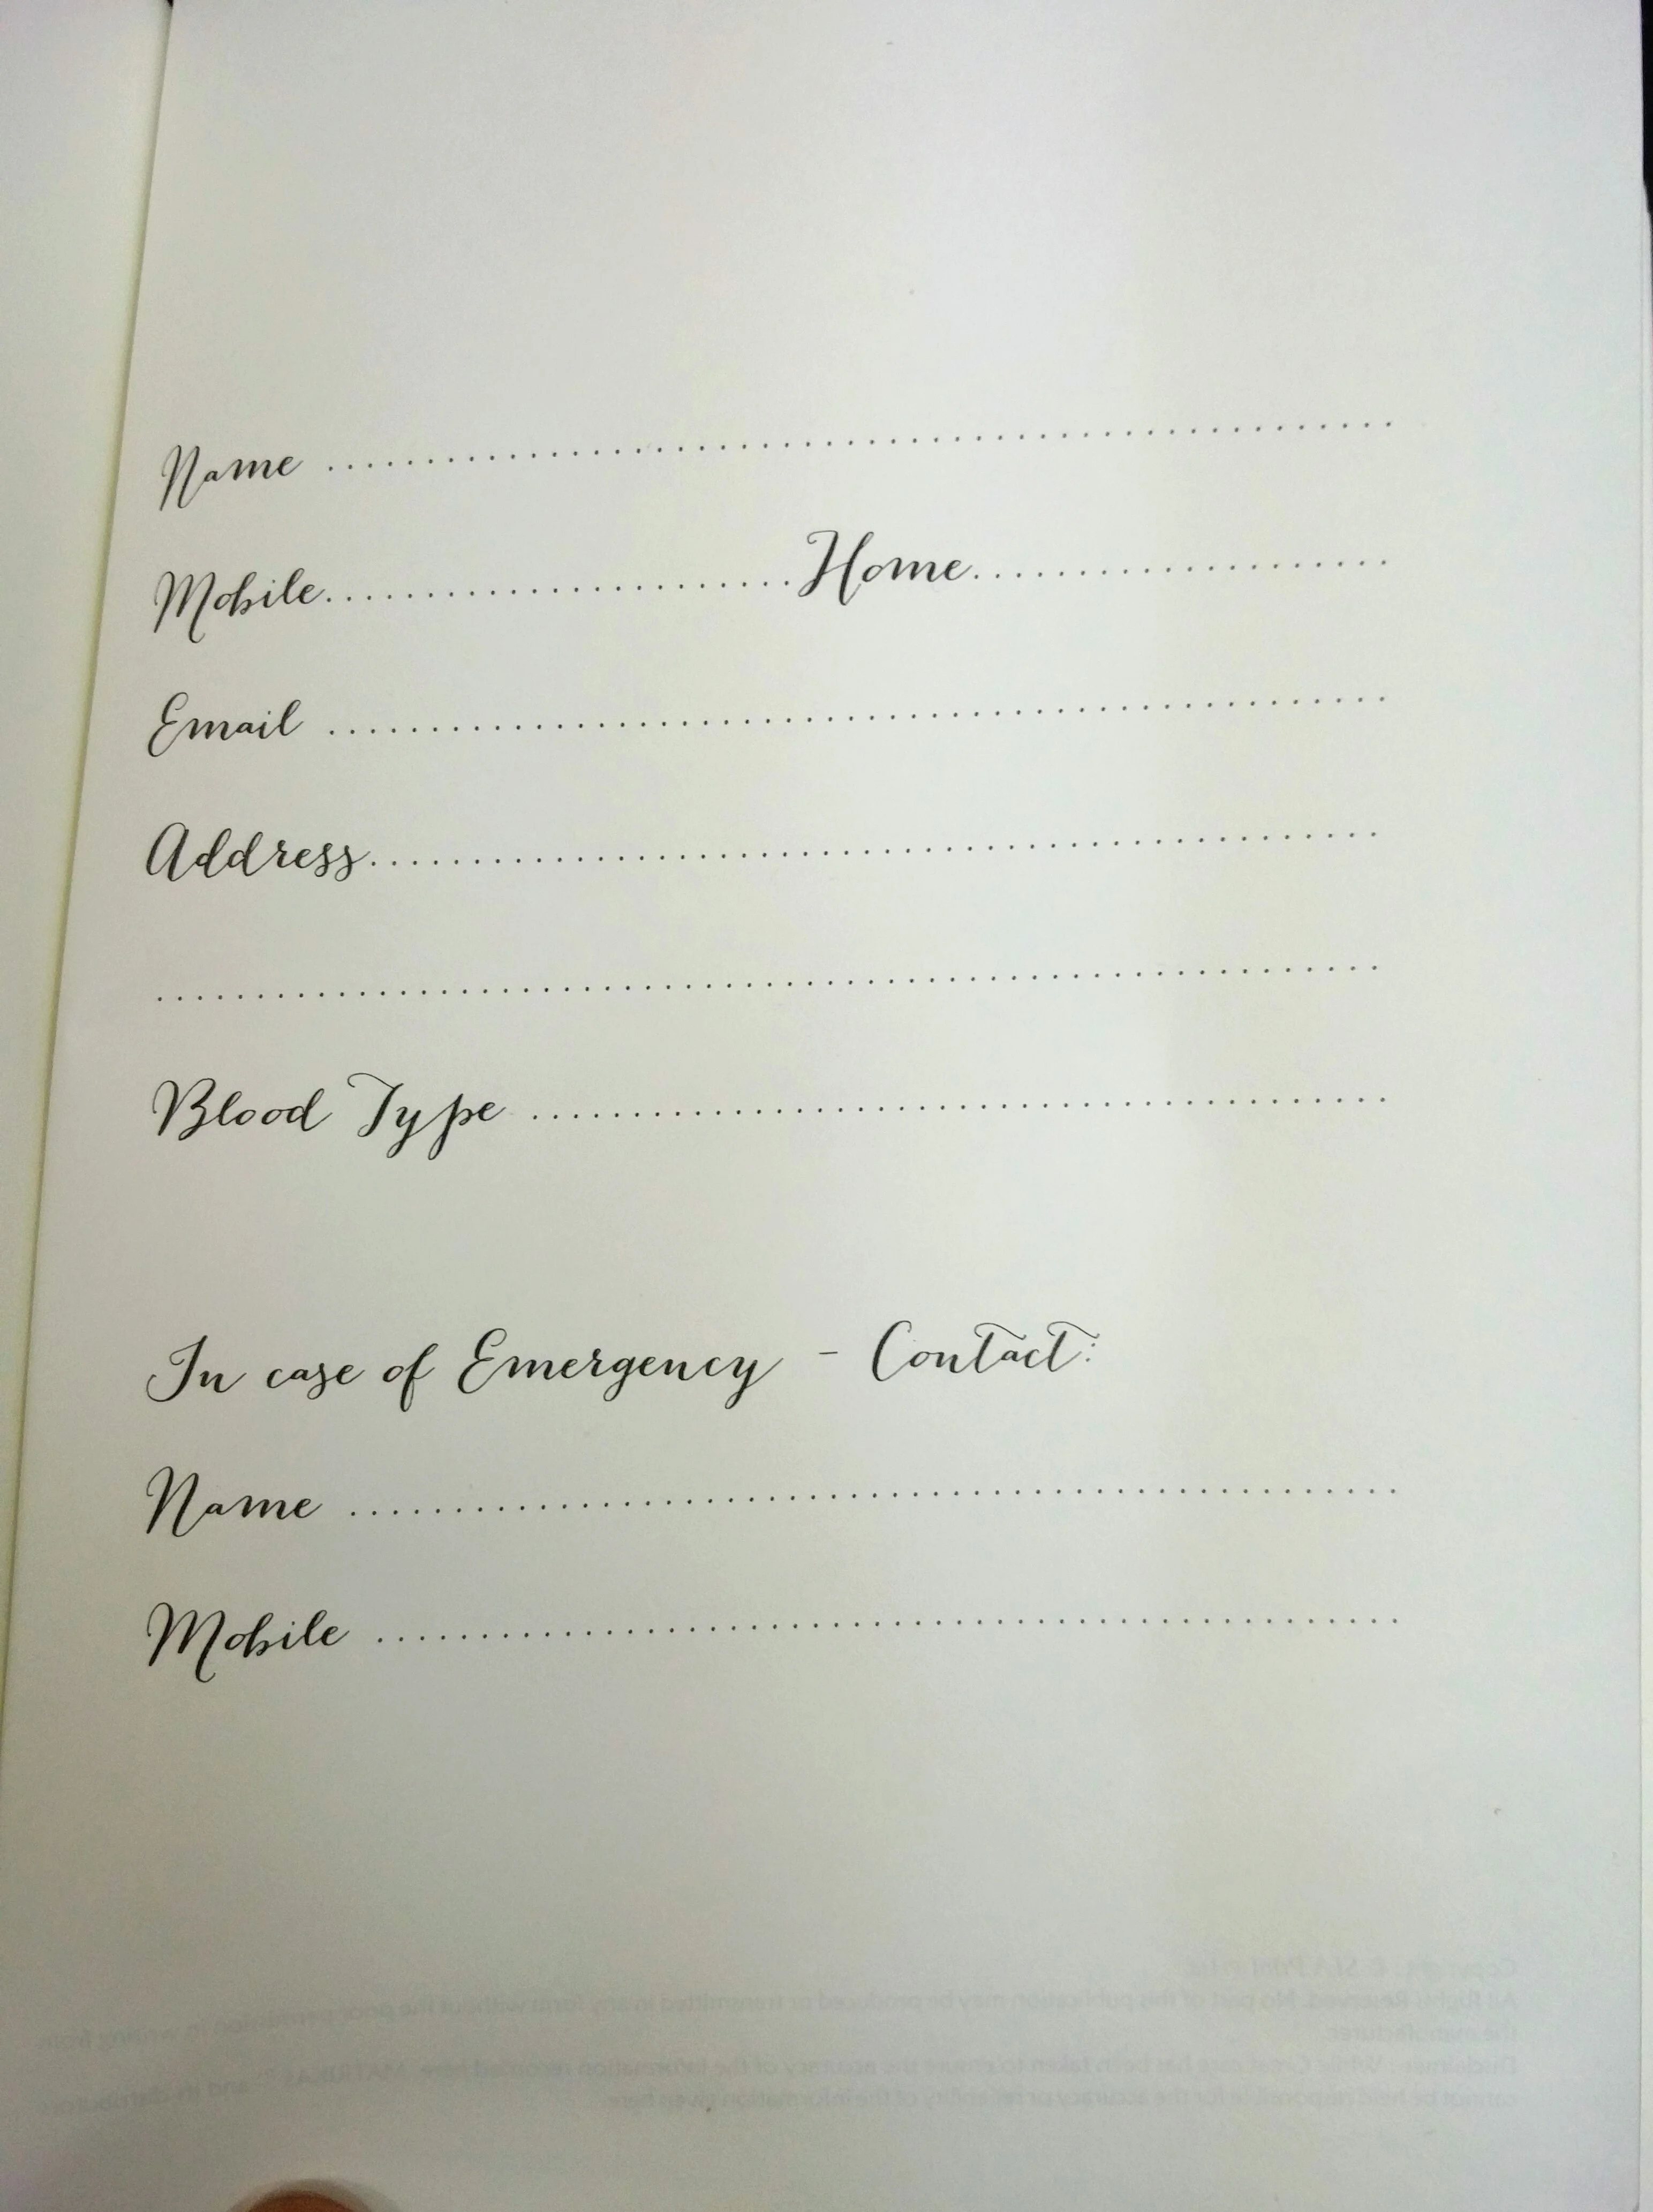 Name ......................................................
Mobile........................Home.....................
Email ......................................................
Address..................................................
..............................................................
Blood Type ..........................................
In case of Emergency - Contact:
Name ....................................................
Mobile ..................................................
All Rights Reserved. No part of this publication may be produced or transmitted in any form without the prior permission in writing from
the manufacturer.
Disclaimer: While Great care has been taken to ensure the accuracy of the information recorded here, MATRIKAS and its distributors
cannot be held responsible for the accuracy or reliability of the information given here.